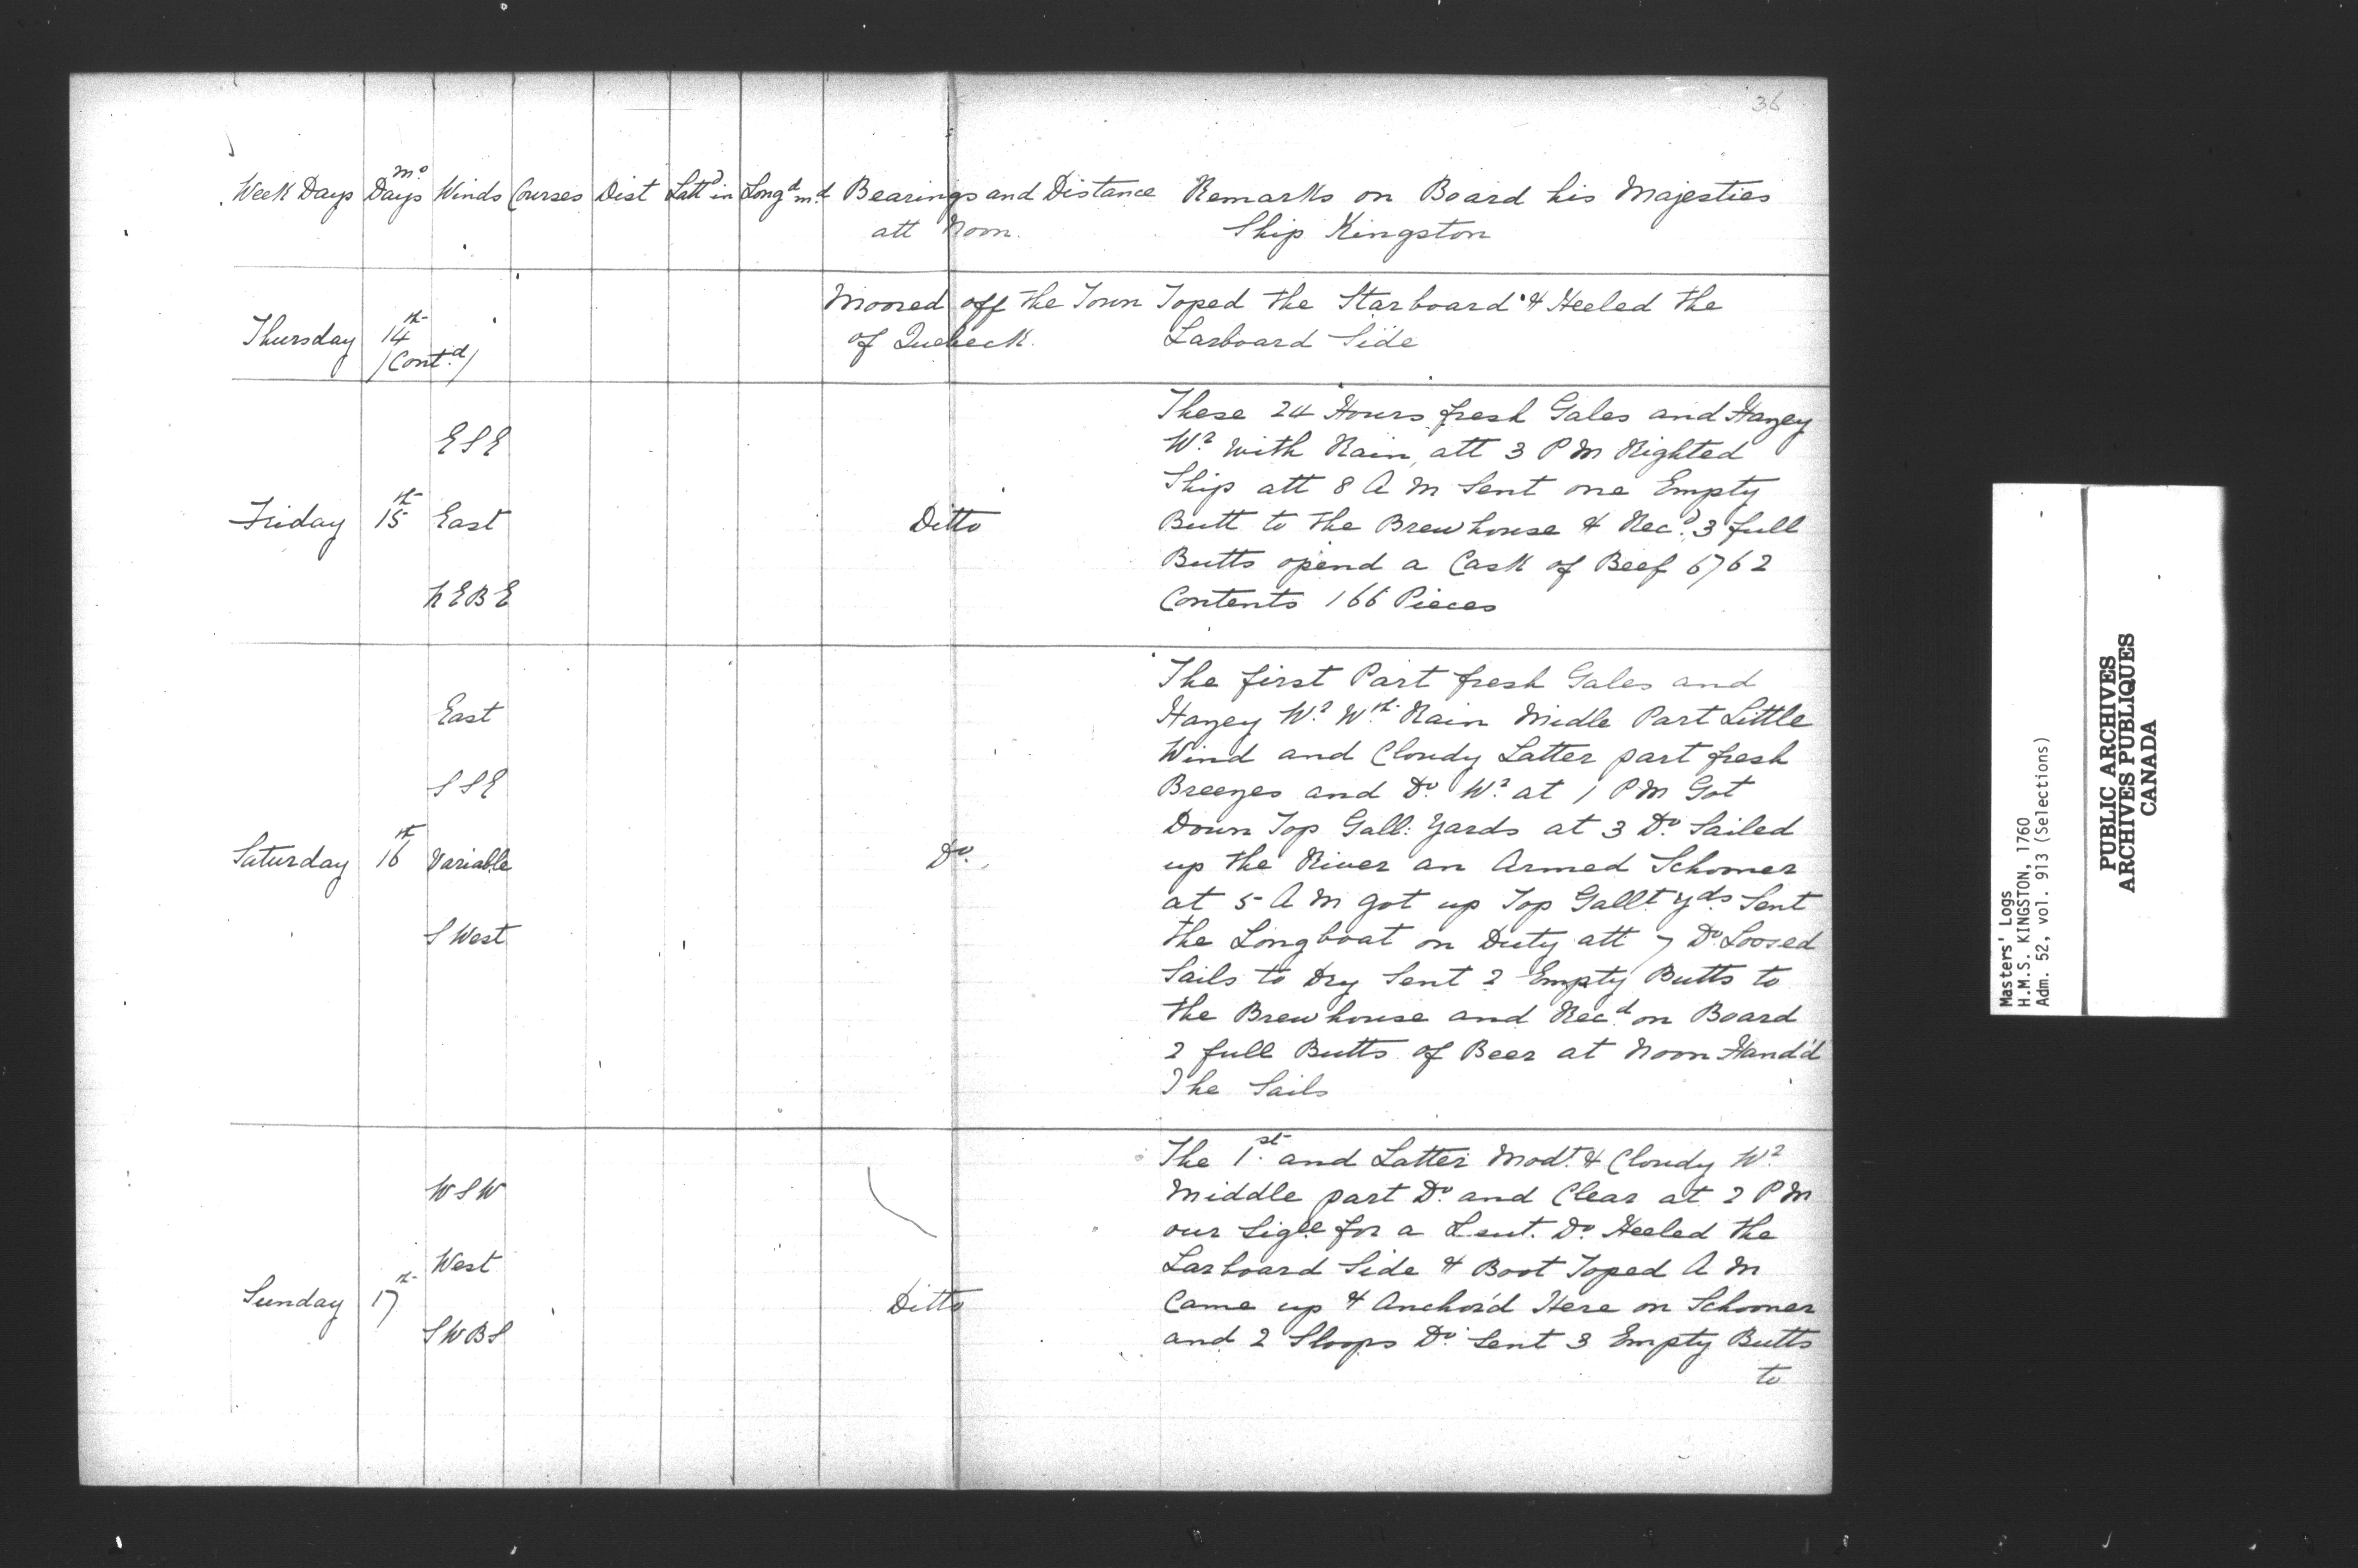 36
Week Days Mo Days Winds Courses Dist Lattd in Longd md Bearings and Distance att Noon. Remarks on Board his Majesties
Ship Kingston
Thursday 14th /Contd/ Moored off the Town of Quebeck. Toped the Starboard & Heeled the
Larboard Side
Friday 15th ESE East NEBE Ditto
These 24 Hours fresh Gales and Hazey
Wr with Rain, att 3 PM Righted
Ship att 8 AM Sent one Empty
Butt to the Brewhouse & Recd 3 full
Butts opend a Cask of Beef 6762
Contents 166 Pieces
Saturday 16th East SSE Variable SWest Do.
The first Part fresh Gales and
Hazey Wr Wth Rain Midle Part Little
Wind and Cloudy Latter part fresh
Breezes and Do Wr at 1 PM Got
Down Top Gall: Yards at 3 Do Sailed
up the River an Armed Schooner
at 5 AM got up Top Gallt yds Sent
the Longboat on Duty att 7 Do Loosed
Sails to Dry Sent 2 Empty Butts to
the Brewhouse and Recd on Board
2 full Butts of Beer at Noon Hand'd
The Sails
Sunday 17th WSW West SWBS Ditto
The 1st and Latter Modt & Cloudy Wr
Middle part Do and Clear at 2 PM
our for a Leut. Do Heeled the
Larboard Side & Boot Toped AM
Came up & Anchor'd Here on Schooner
and 2 Sloops Do Sent 3 Empty Butts
to
Masters' Logs
H.M.S. KINGSTON, 1760
Adm. 52, vol. 913 (Selections)
PUBLIC ARCHIVES
ARCHIVES PUBLIQUES
CANADA